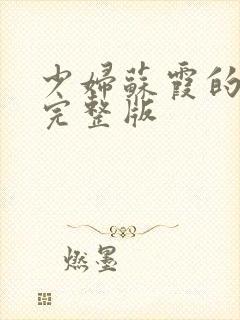 少婦蘇霞的
完整版
燃墨